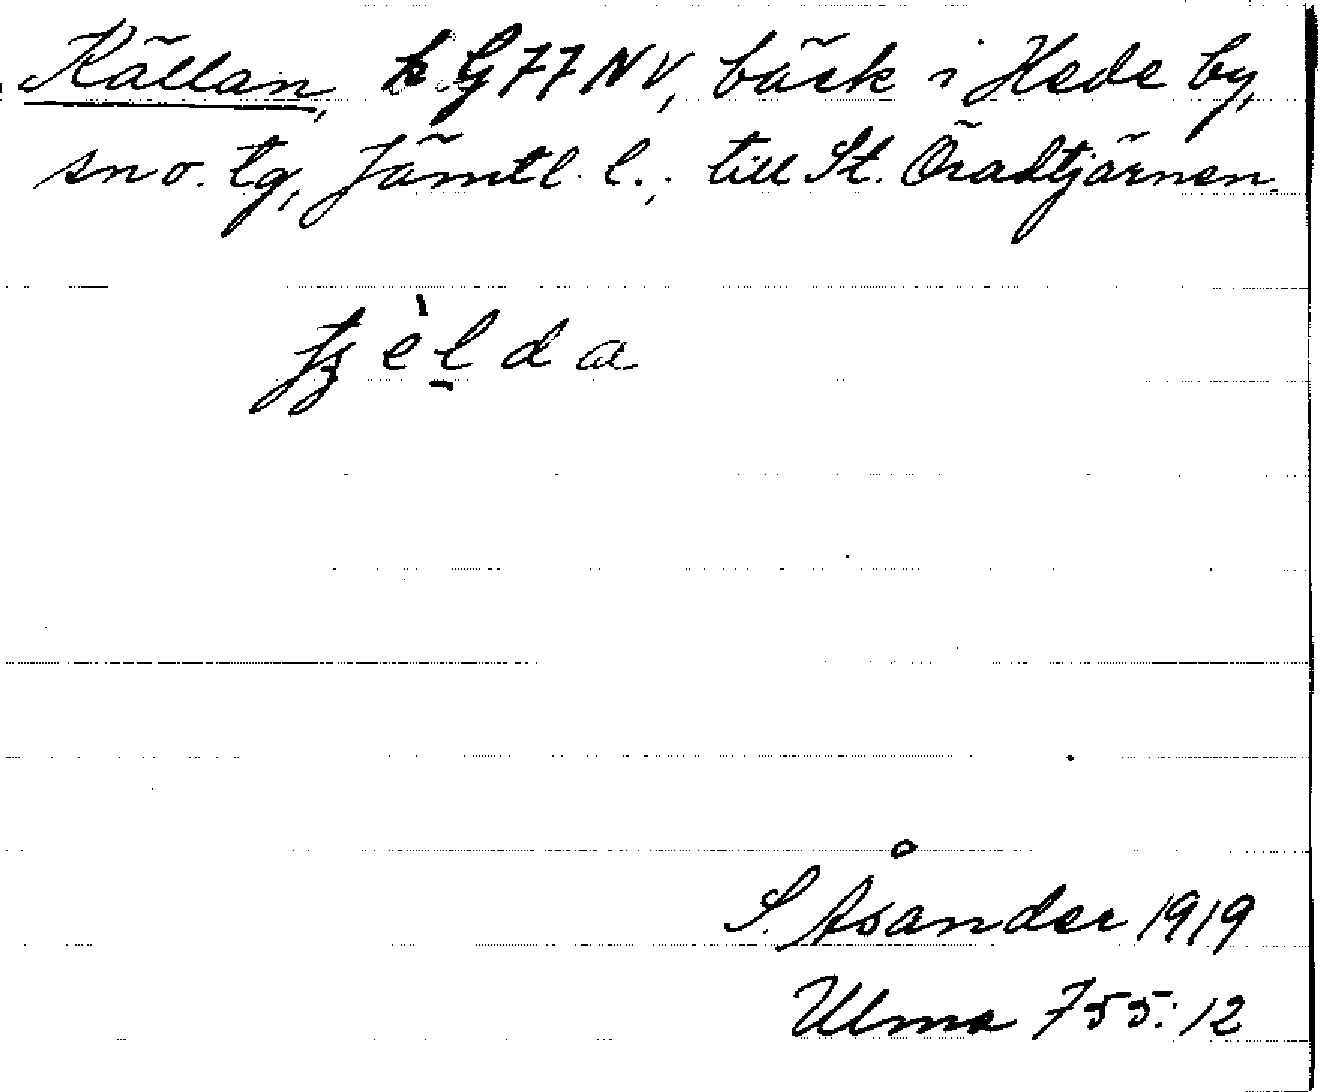 Källan, k G77NV, bäck i Hede by,
sn o. tg, Jämtl. l.; till St. Öradtjärnen.
èlda
S. Åsander 1919
Ulma 755:12